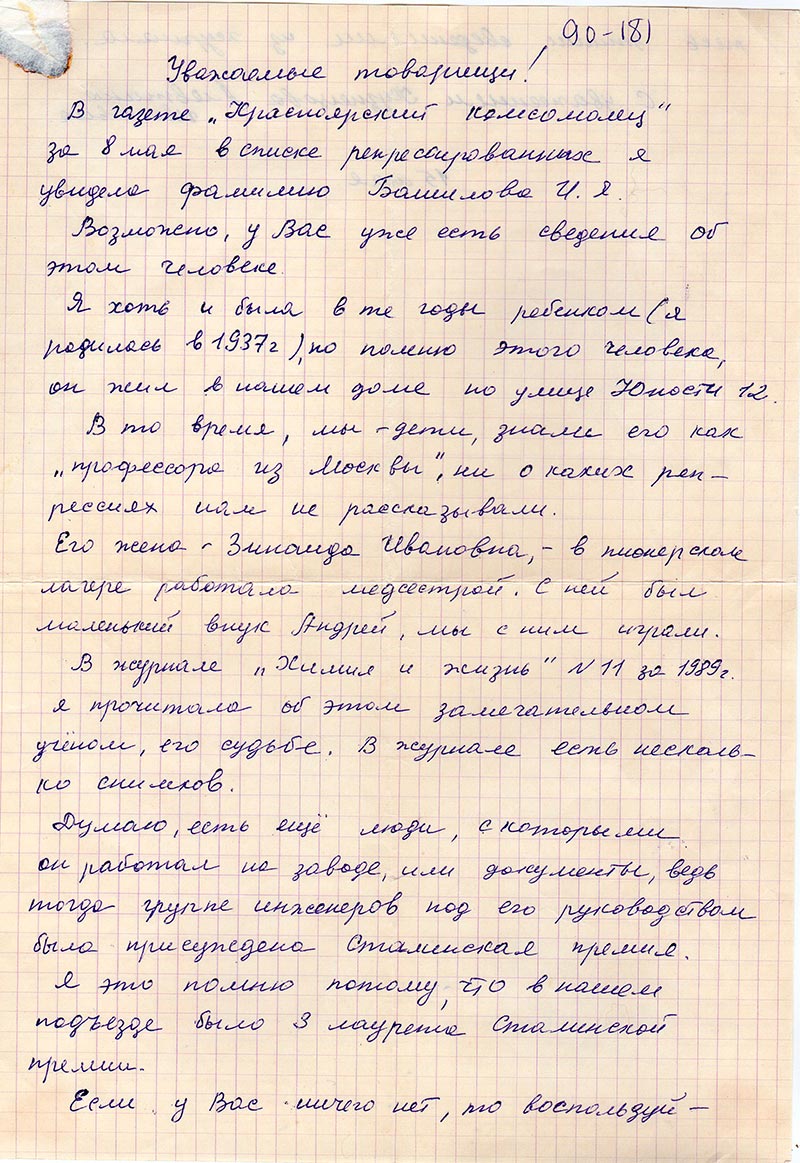 90-181
Уважаемые товарищи!
В газете „Красноярский комсомолец“
за 8 мая в списке репрессированных я
увидела фамилию Башилова И. Я.
Возможно, у Вас уже есть сведения об
этом человеке.
Я хоть и была в те годы ребенком (я
родилась в 1937г), но помню этого человека,
он жил в нашем доме по улице Юности 12.
В то время, мы - дети, знали его как
„профессора из Москвы“, ни о каких реп-
рессиях нам не рассказывали.
Его жена - Зинаида Ивановна, - в пионерском
лагере работала медсестрой. С ней был
маленький внук Андрей, мы с ним играли.
В журнале „Химия и жизнь“ N 11 за 1989г.
я прочитала об этом замечательном
учёном, его судьбе. В журнале есть несколь-
ко снимков.
Думаю, есть ещё люди, с которыми
он работал на заводе, или документы, ведь
тогда группе инженеров под его руководством
была присуждена Сталинская премия.
Я это помню потому, что в нашем
подъезде было 3 лауреата Сталинской
премии.
Если у Вас ничего нет, то воспользуй-